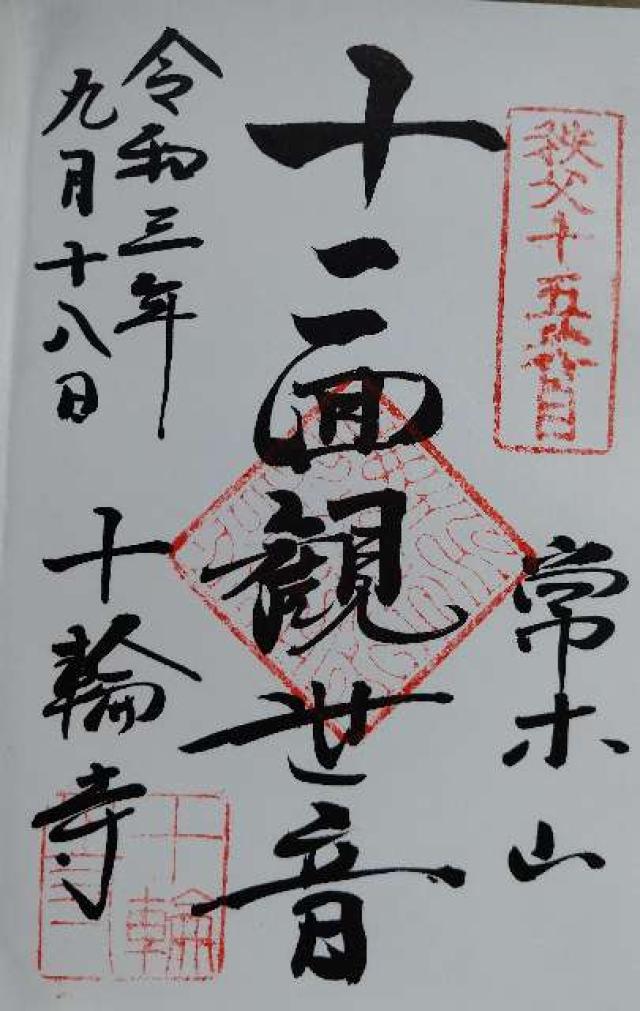 秩父十五番目
常木山
十一面観世音
令和三年
九月十八日
十輪寺
十輪